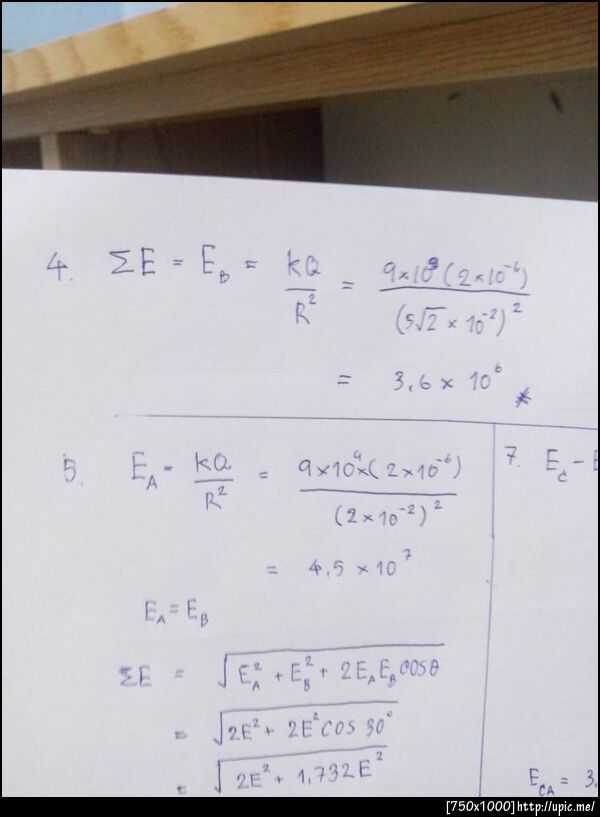 4. ΣE = E_B = kQ/R² = 9×10⁹(2×10⁻⁶)/(5√2×10⁻²)²
= 3,6 × 10⁶ *
5. E_A = kQ/R² = 9×10⁹×(2×10⁻⁶)/(2×10⁻²)²
= 4,5 × 10⁷
E_A = E_B
ΣE = √(E_A² + E_B² + 2E_A E_B COSθ)
= √(2E² + 2E² COS 30°)
= √(2E² + 1,732E²)
7. E_C -
E_CA = 3.
[750x1000]http://upic.me/